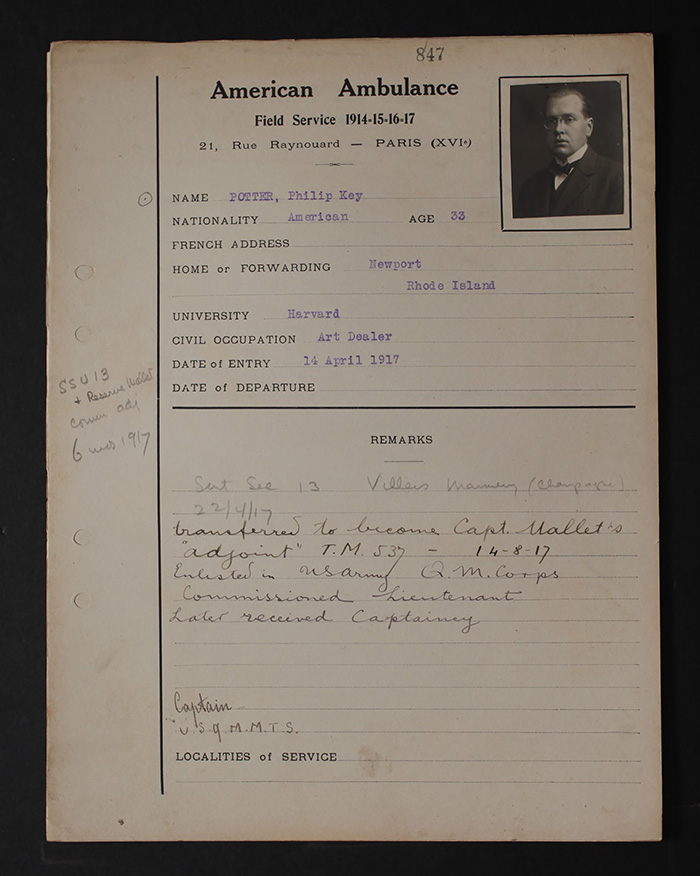 847
American Ambulance
Field Service 1914-15-16-17
21, Rue Raynouard — PARIS (XVIe)
NAME POTTER, Philip Key
NATIONALITY American AGE 33
FRENCH ADDRESS
HOME or FORWARDING Newport
Rhode Island
UNIVERSITY Harvard
CIVIL OCCUPATION Art Dealer
DATE of ENTRY 14 April 1917
DATE of DEPARTURE
SSU 13
+ Reserve Mallet
Comm adj
6 mos 1917
REMARKS
Sent Sec 13 Villers Marmery (Champagne)
22/4/17
transferred to become Capt. Mallet's
"adjoint" T.M. 537 - 14-8-17
Enlisted in US Army Q.M. Corps
Commissioned Lieutenant
Later received Captaincy
Captain
U.S.Q.M.M.T.S.
LOCALITIES of SERVICE